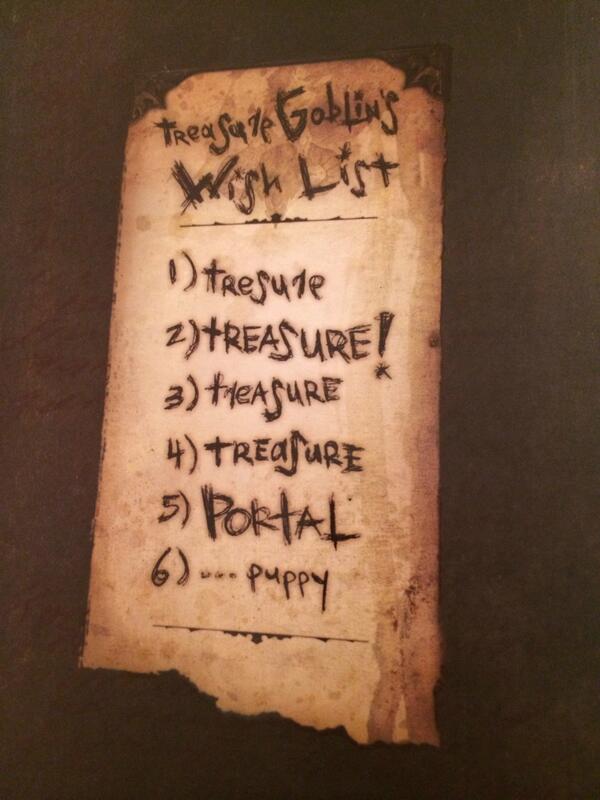 treasure Goblin's
Wish List
1) tresure
2) tREASURE!
3) treASURE
4) tREaSURE
5) PORtAL
6) ... puppy